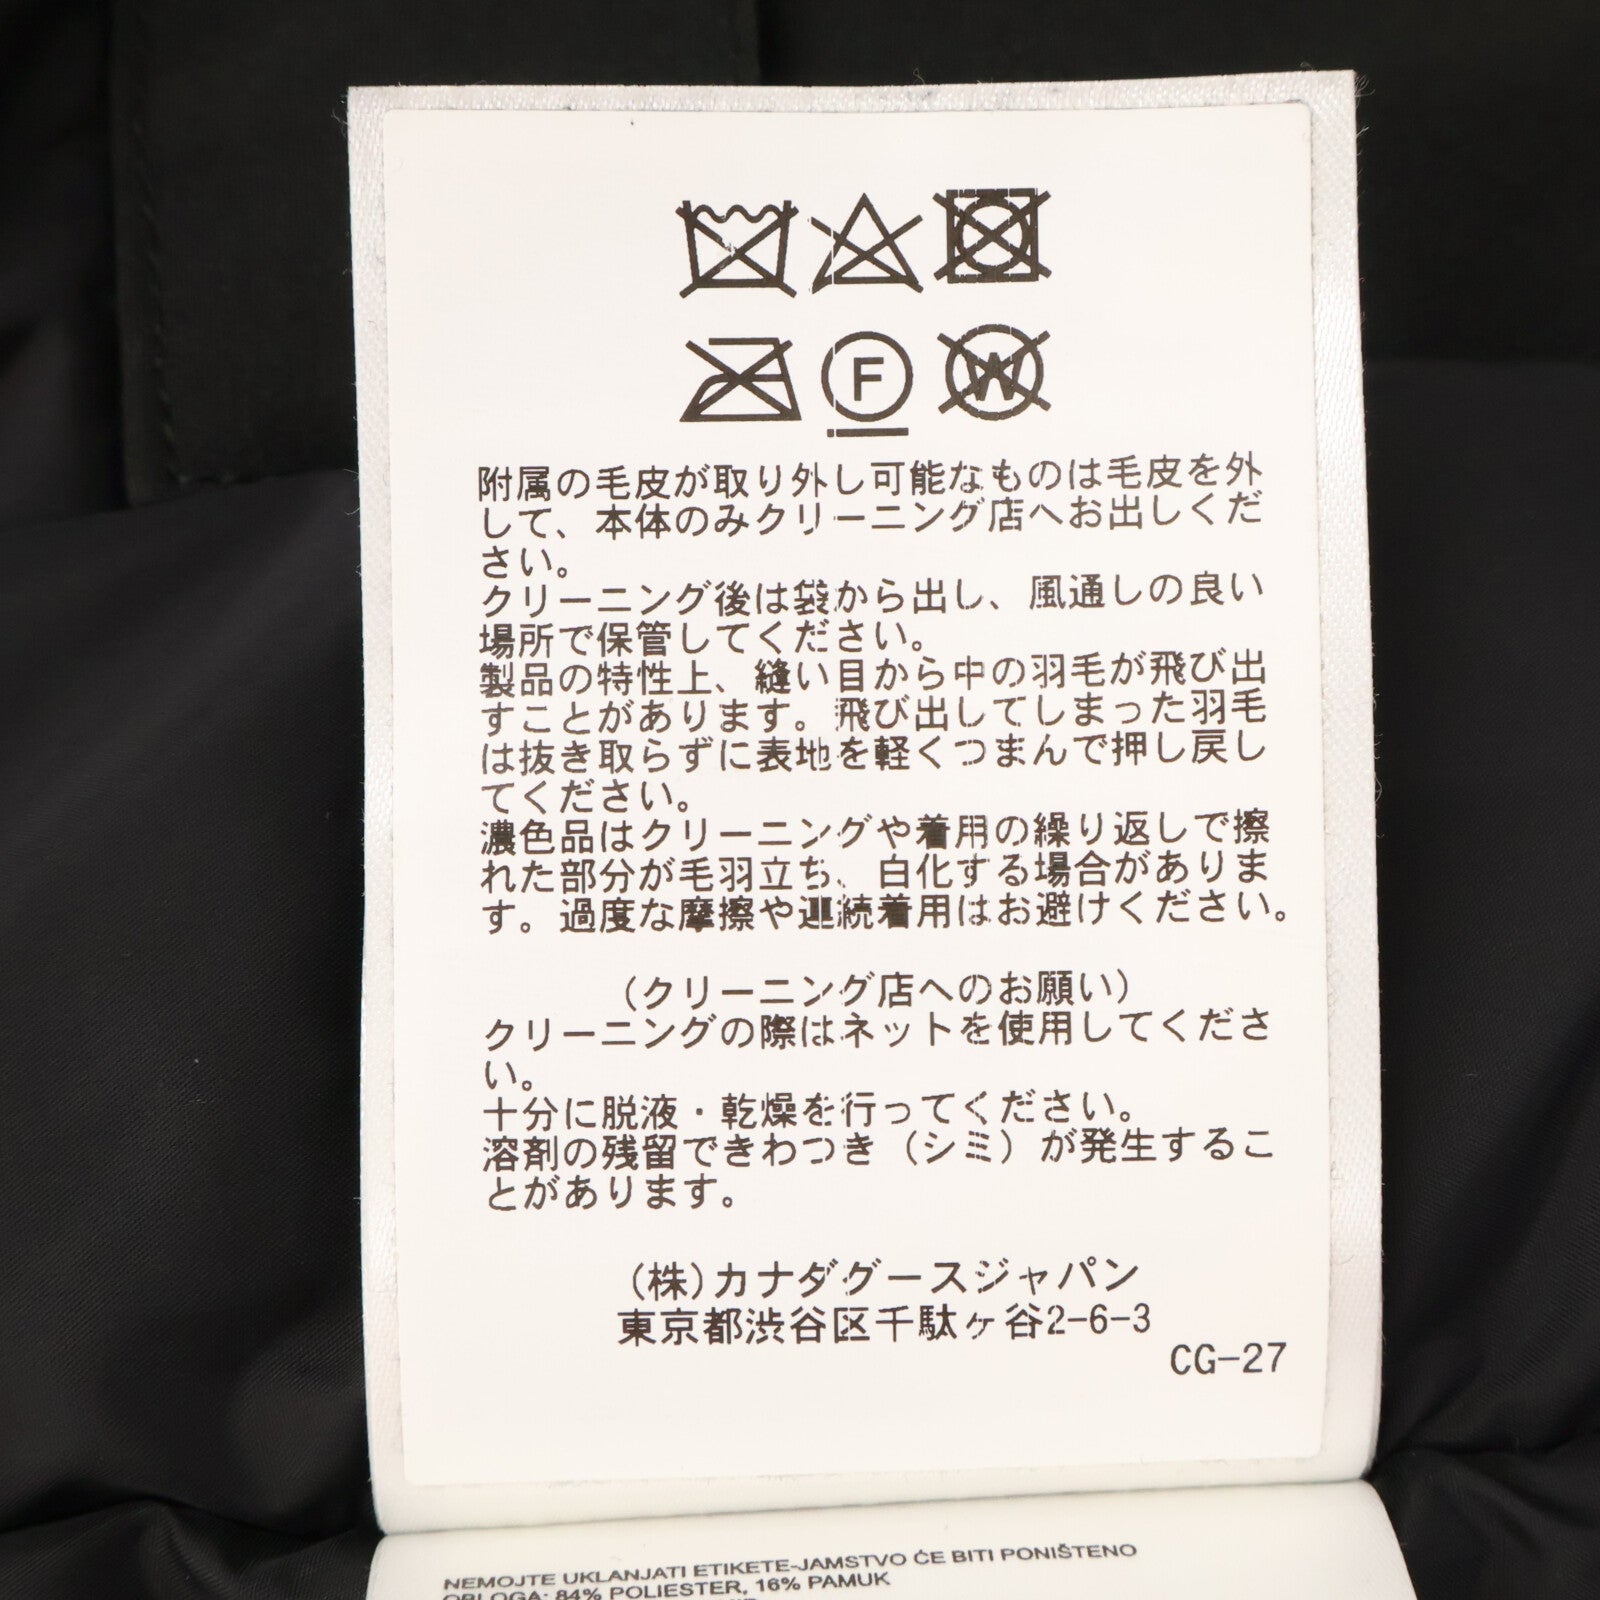 F
W
附属の毛皮が取り外し可能なものは毛皮を外
して、本体のみクリーニング店へお出しくだ
さい。
クリーニング後は袋から出し、風通しの良い
場所で保管してください。
製品の特性上、縫い目から中の羽毛が飛び出
すことがあります。飛び出してしまった羽毛
は抜き取らずに表地を軽くつまんで押し戻し
てください。
濃色品はクリーニングや着用の繰り返しで擦
れた部分が毛羽立ち、白化する場合がありま
す。過度な摩擦や連続着用はお避けください。
(クリーニング店へのお願い)
クリーニングの際はネットを使用してくださ
い。
十分に脱液・乾燥を行ってください。
溶剤の残留できわつき(シミ)が発生するこ
とがあります。
(株)カナダグースジャパン
東京都渋谷区千駄ヶ谷2-6-3
CG-27
NEMOJTE UKLANJATI ETIKETE-JAMSTVO ĆE BITI PONIŠTENO
OBLOGA: 84% POLIESTER, 16% PAMUK